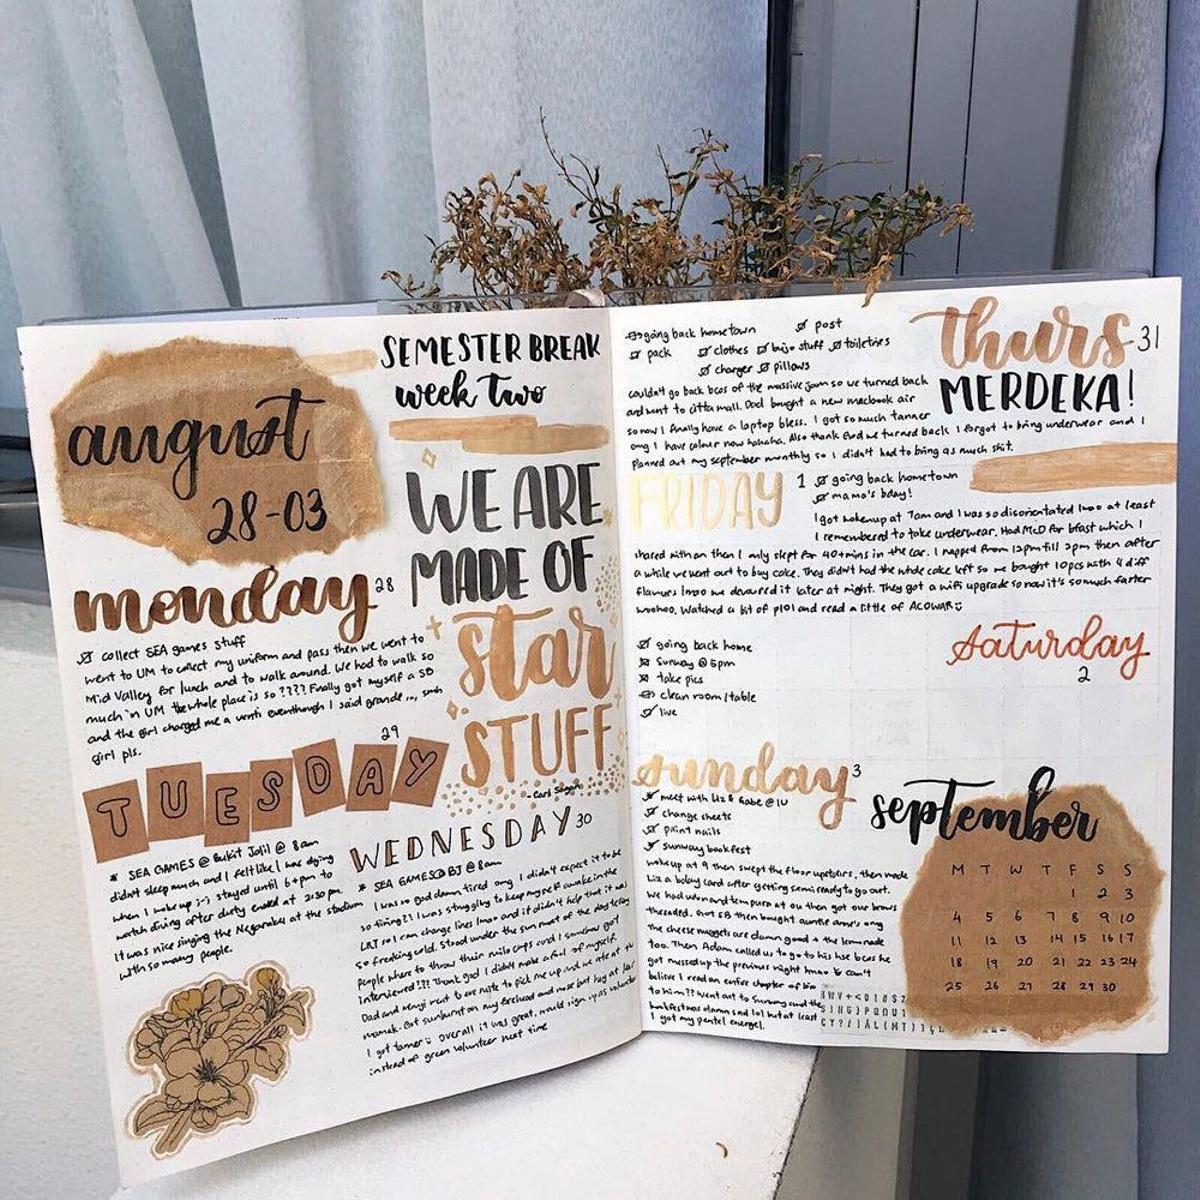 august
28-03
SEMESTER BREAK
week two
WE ARE
MADE OF
star
STUFF
- Carl Sagan
monday 28
collect SEA games stuff
went to UM to collect my uniform and pass then we went to
Mid Valley for lunch and to walk around. We had to walk so
much in UM the whole place is so ???? Finally got myself a SB
and the girl charged me a venti eventhough I said grande ..., smh
girl pls.
29
TUESDAY
* SEA GAMES @ Bukit Jalil @ 8am
didn't sleep much and I felt like I was dying
when I woke up :-) stayed until 6+pm to
watch diving after duty ended at 2:30pm.
It was nice singing the Negaraku at the stadium
with so many people.
WEDNESDAY 30
* SEA GAMES @ BJ @ 8am
I was so god damn tired omg I didn't expect it to be
so tiring?! I was struggling to keep myself awake in the
LRT so I can change lines lmao and it didn't help that it was
so freaking cold. Stood under the sun most of the day telling
people where to throw their milo cups and I somehow got
interviewed??? Thank god I didn't make a fool of myself.
Dad and came to pick me up and we ate at
Got sunburnt on my forehead and nose but hey at least
I got tanner Overall it was great, would sign up as volunteer
instead of green volunteer next time
thurs 31
MERDEKA!
going back hometown
post
pack
clothes
bujo stuff
toiletries
charger
pillows
couldn't go back bcos of the massive jam so we turned back
and went to citta mall. Dad bought a new macbook air
so now I finally have a laptop bless. I got so much tanner
omg I have colour now hahaha. Also thank God we turned back I forgot to bring underwear and I
planned out my september monthly so I didn't had to bring as much shit.
FRIDAY 1
going back hometown
mama's bday!
I got woken up at 7am and I was so disorientated lmao at least
I remembered to take underwear. Had McD for bfast which I
shared with an then I only slept for 40+mins in the car. I napped from 12pm till 2pm then after
a while we went out to buy cake. They didn't had the whole cake left so we bought 10pcs with 4 diff
flavours lmao we devoured it later at night. They got a wifi upgrade so now it's so much faster
woohoo. Watched a bit of p101 and read a little of ACOWAR
saturday
2
going back home
Sunway @ 5pm
take pics
clean room/table
live
sunday 3
meet with Liz & Gabe @ IU
change sheets
paint nails
sunway bookfest
woke up at 9 then swept the floor upstairs, then made
Liz a bday card after getting semi ready to go out.
We had udon and tempura at ou then got our brows
threaded. Got SB then bought auntie anne's omg
the cheese nuggets are damn good + the lemonade
too. Then Adam called us to go to his hse bcos he
got messed up the previous night lmao & can't
believe I read an entire chapter of bio
to him?? Went out to Sunway and the
damn sad lol but at least
I got my pentel energel.
september
M T W T F S S
1 2 3
4 5 6 7 8 9 10
11 12 13 14 15 16 17
18 19 20 21 22 23 24
25 26 27 28 29 30